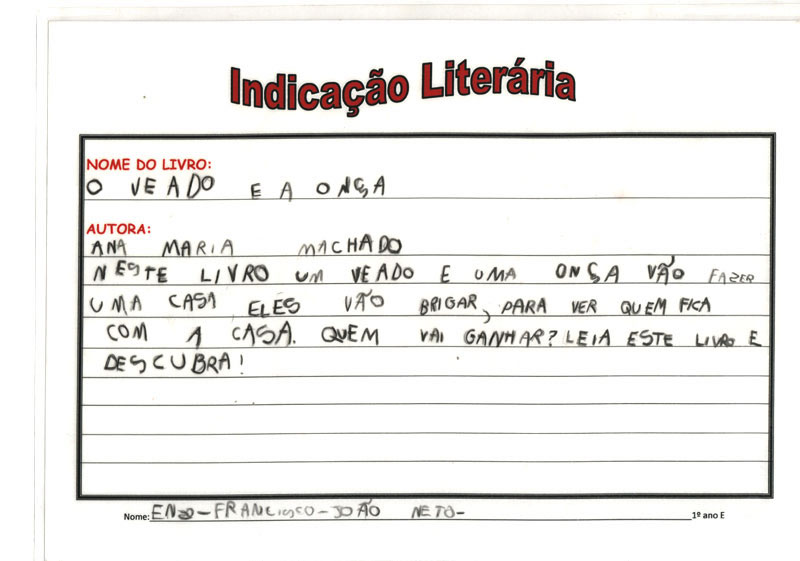 Indicação Literária
NOME DO LIVRO:
O VEADO E A ONÇA
AUTORA:
ANA MARIA MACHADO
NESTE LIVRO UM VEADO E UMA ONÇA VÃO FAZER
UMA CASA ELES VÃO BRIGAR, PARA VER QUEM FICA
COM A CASA. QUEM VAI GANHAR? LEIA ESTE LIVRO E
DESCUBRA!
Nome: ENZO-FRANCISCO-JOÃO NETO- 1º ano E